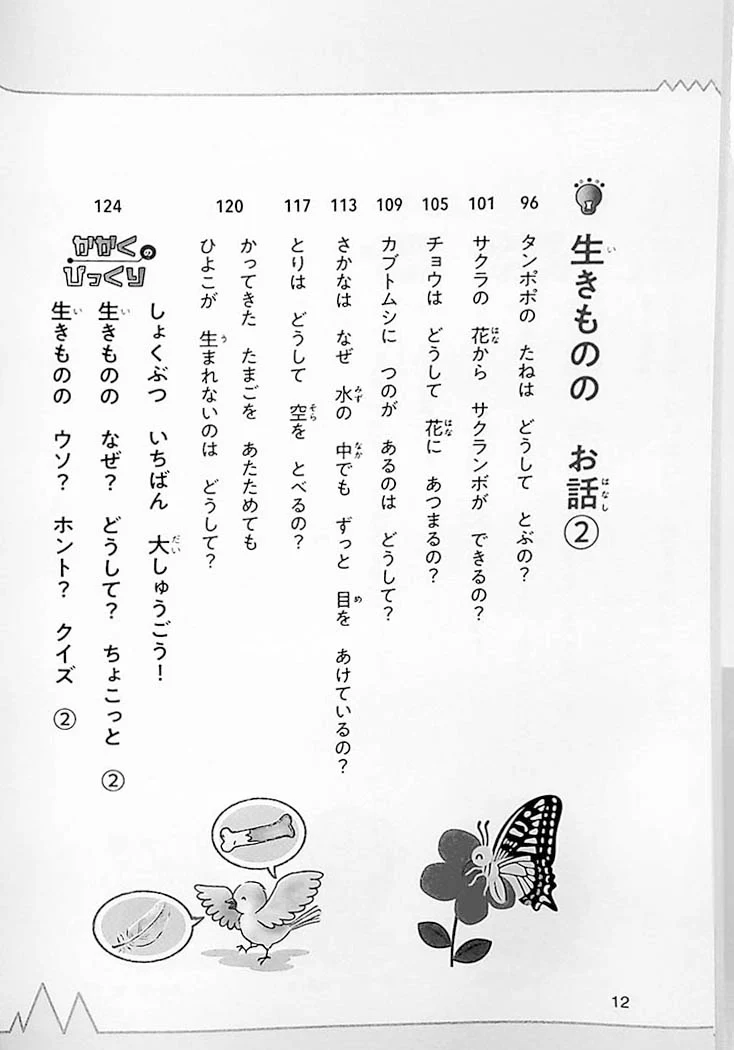 生きものの お話②
96 タンポポの たねは どうして とぶの?
101 サクラの 花から サクランボが できるの?
105 チョウは どうして 花に あつまるの?
109 カブトムシに つのが あるのは どうして?
113 さかなは なぜ 水の 中でも ずっと 目を あけているの?
117 とりは どうして 空を とべるの?
120 かってきた たまごを あたためても
ひよこが 生まれないのは どうして?
124 かがくのびっくり
しょくぶつ いちばん 大しゅうごう!
生きものの なぜ? どうして? ちょこっと ②
生きものの ウソ? ホント? クイズ ②
12